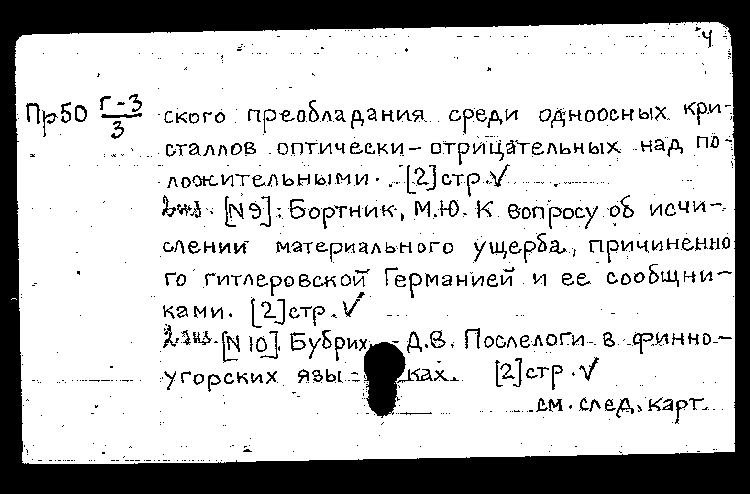 4
Пр50 Г-3/3 ского преобладания среди одноосных кри-
сталлов оптически-отрицательных над по-
ложительными. [2]стр.√
2 экз. [N 9]: Бортник, М.Ю. К вопросу об исчи-
слении материального ущерба, причиненно
го гитлеровской Германией и ее сообщни-
ками. [2]стр.√
2 экз. [N 10]. Бубрих, Д.В. Послелоги в финно-
угорских язы-ках. [2]стр.√
см. след. карт.